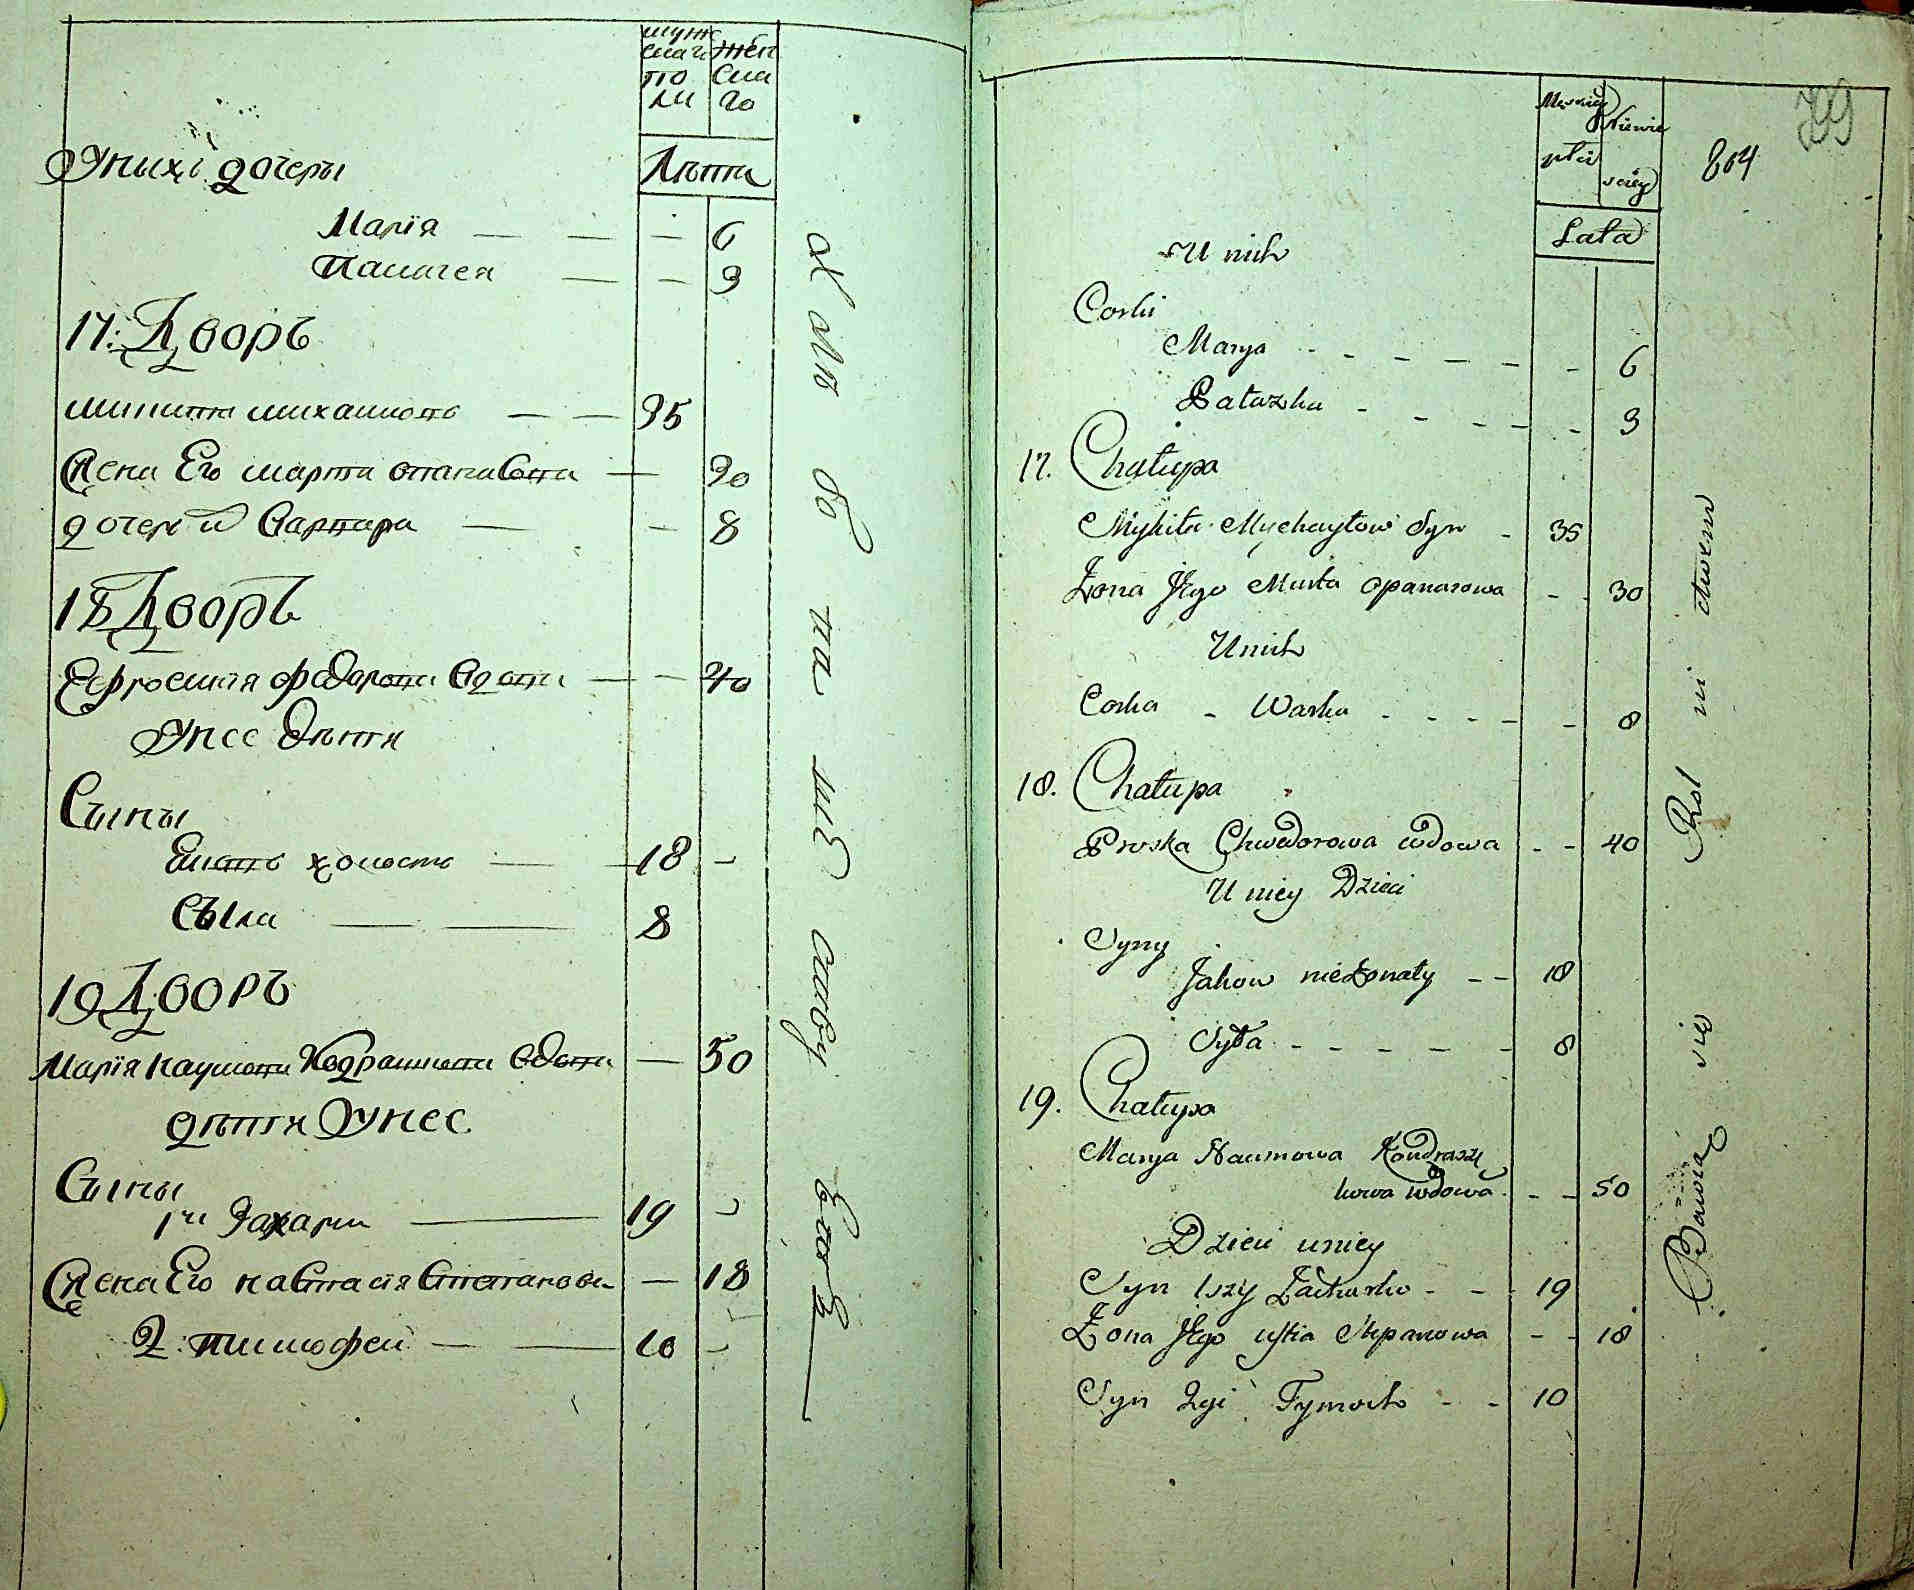 муж
скаго
по
ла
жен
ска
го
Лѣта
Унихъ дочеры
Марїя — — — 6
Палагея — — 3
17: Дворъ
Микита михаиловъ — — 35
Жена Его марта опанасова — 30
дочеръ Варвара — — 8
18 Дворъ
Ефросиния федорова вдова — — 40
Унее дѣтя
Сыны
Яковъ холостъ — 18 -
Сыла — — 8
19 Дворъ
Марїя Наумова Кодрашкова вдова — 50
дѣтя Унее
Сыны
1й Захари — 19
Жена Его настасїя Степанова — 18
2: тимофей — — 10
Męskiey
płci
Niewie
sciey
Lata
79
804
U nich
Corki
Marya - - - - - - 6
Pałazka - - - - - 3
17. Chałupa
Mykita Mychayłow Syn - 35
Żona Jego Marta Opanasowa - - 30
U nich
Corka - Warka - - - - - 8
18. Chałupa
Pruska Chwedorowa wdowa - - 40
U niey Dzieci
Syny
Jakow nieżonaty - - 18
Syła - - - - - 8
19. Chałupa
Marya Naumowa Kondraszy
kowa wdowa - - 50
Dzieci u niey
Syn 1szy Zacharko - - 19
Żona Jego Stepanowa - - 18
Syn 2gi Tymoch - - 10
Bawią się Rol ni ctwem